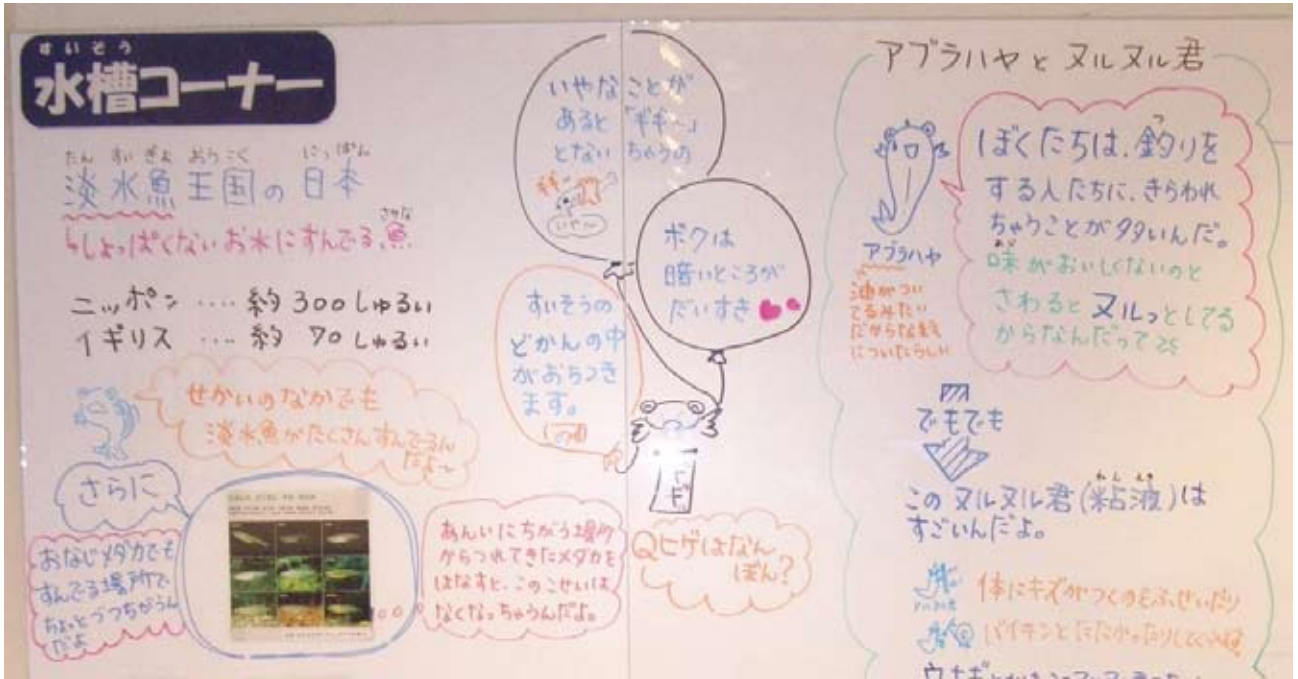 すいそう
水槽コーナー
たんすいぎょおうこく にっぽん
淡水魚王国の日本
さかな
しょっぱくないお水にすんでる、魚
ニッポン ‥‥ 約300しゅるい
イギリス ‥‥ 約 70しゅるい
せかいのなかでも
淡水魚がたくさんすんでるん
だよ〜
さらに
おなじメダカでも
すんでる場所で
ちょっとづつちがうん
だよ
あんいにちがう場所
からつれてきたメダカを
はなすと、このこせいは
なくなっちゃうんだよ。
いやなことが
あると「ギギ〜」
とないちゃうの
ギギー
いや〜
ボクは
暗いところが
だいすき
すいそうの
どかんの中
がおちつき
ます。
Qヒゲはなん
ぼん?
アブラハヤとヌルヌル君
アブラハヤ
油がつい
てるみたい
だからな前
についたらしい
つ
ぼくたちは、釣りを
する人たちに、きらわれ
ちゃうことが多いんだ。
あじ
味がおいしくないのと
さわるとヌルっとしてる
からなんだって
でもでも
ねんえき
このヌルヌル君(粘液)は
すごいんだよ。
体にキズがつくのをふせいだり
バイキンとたたかったりしてくれる